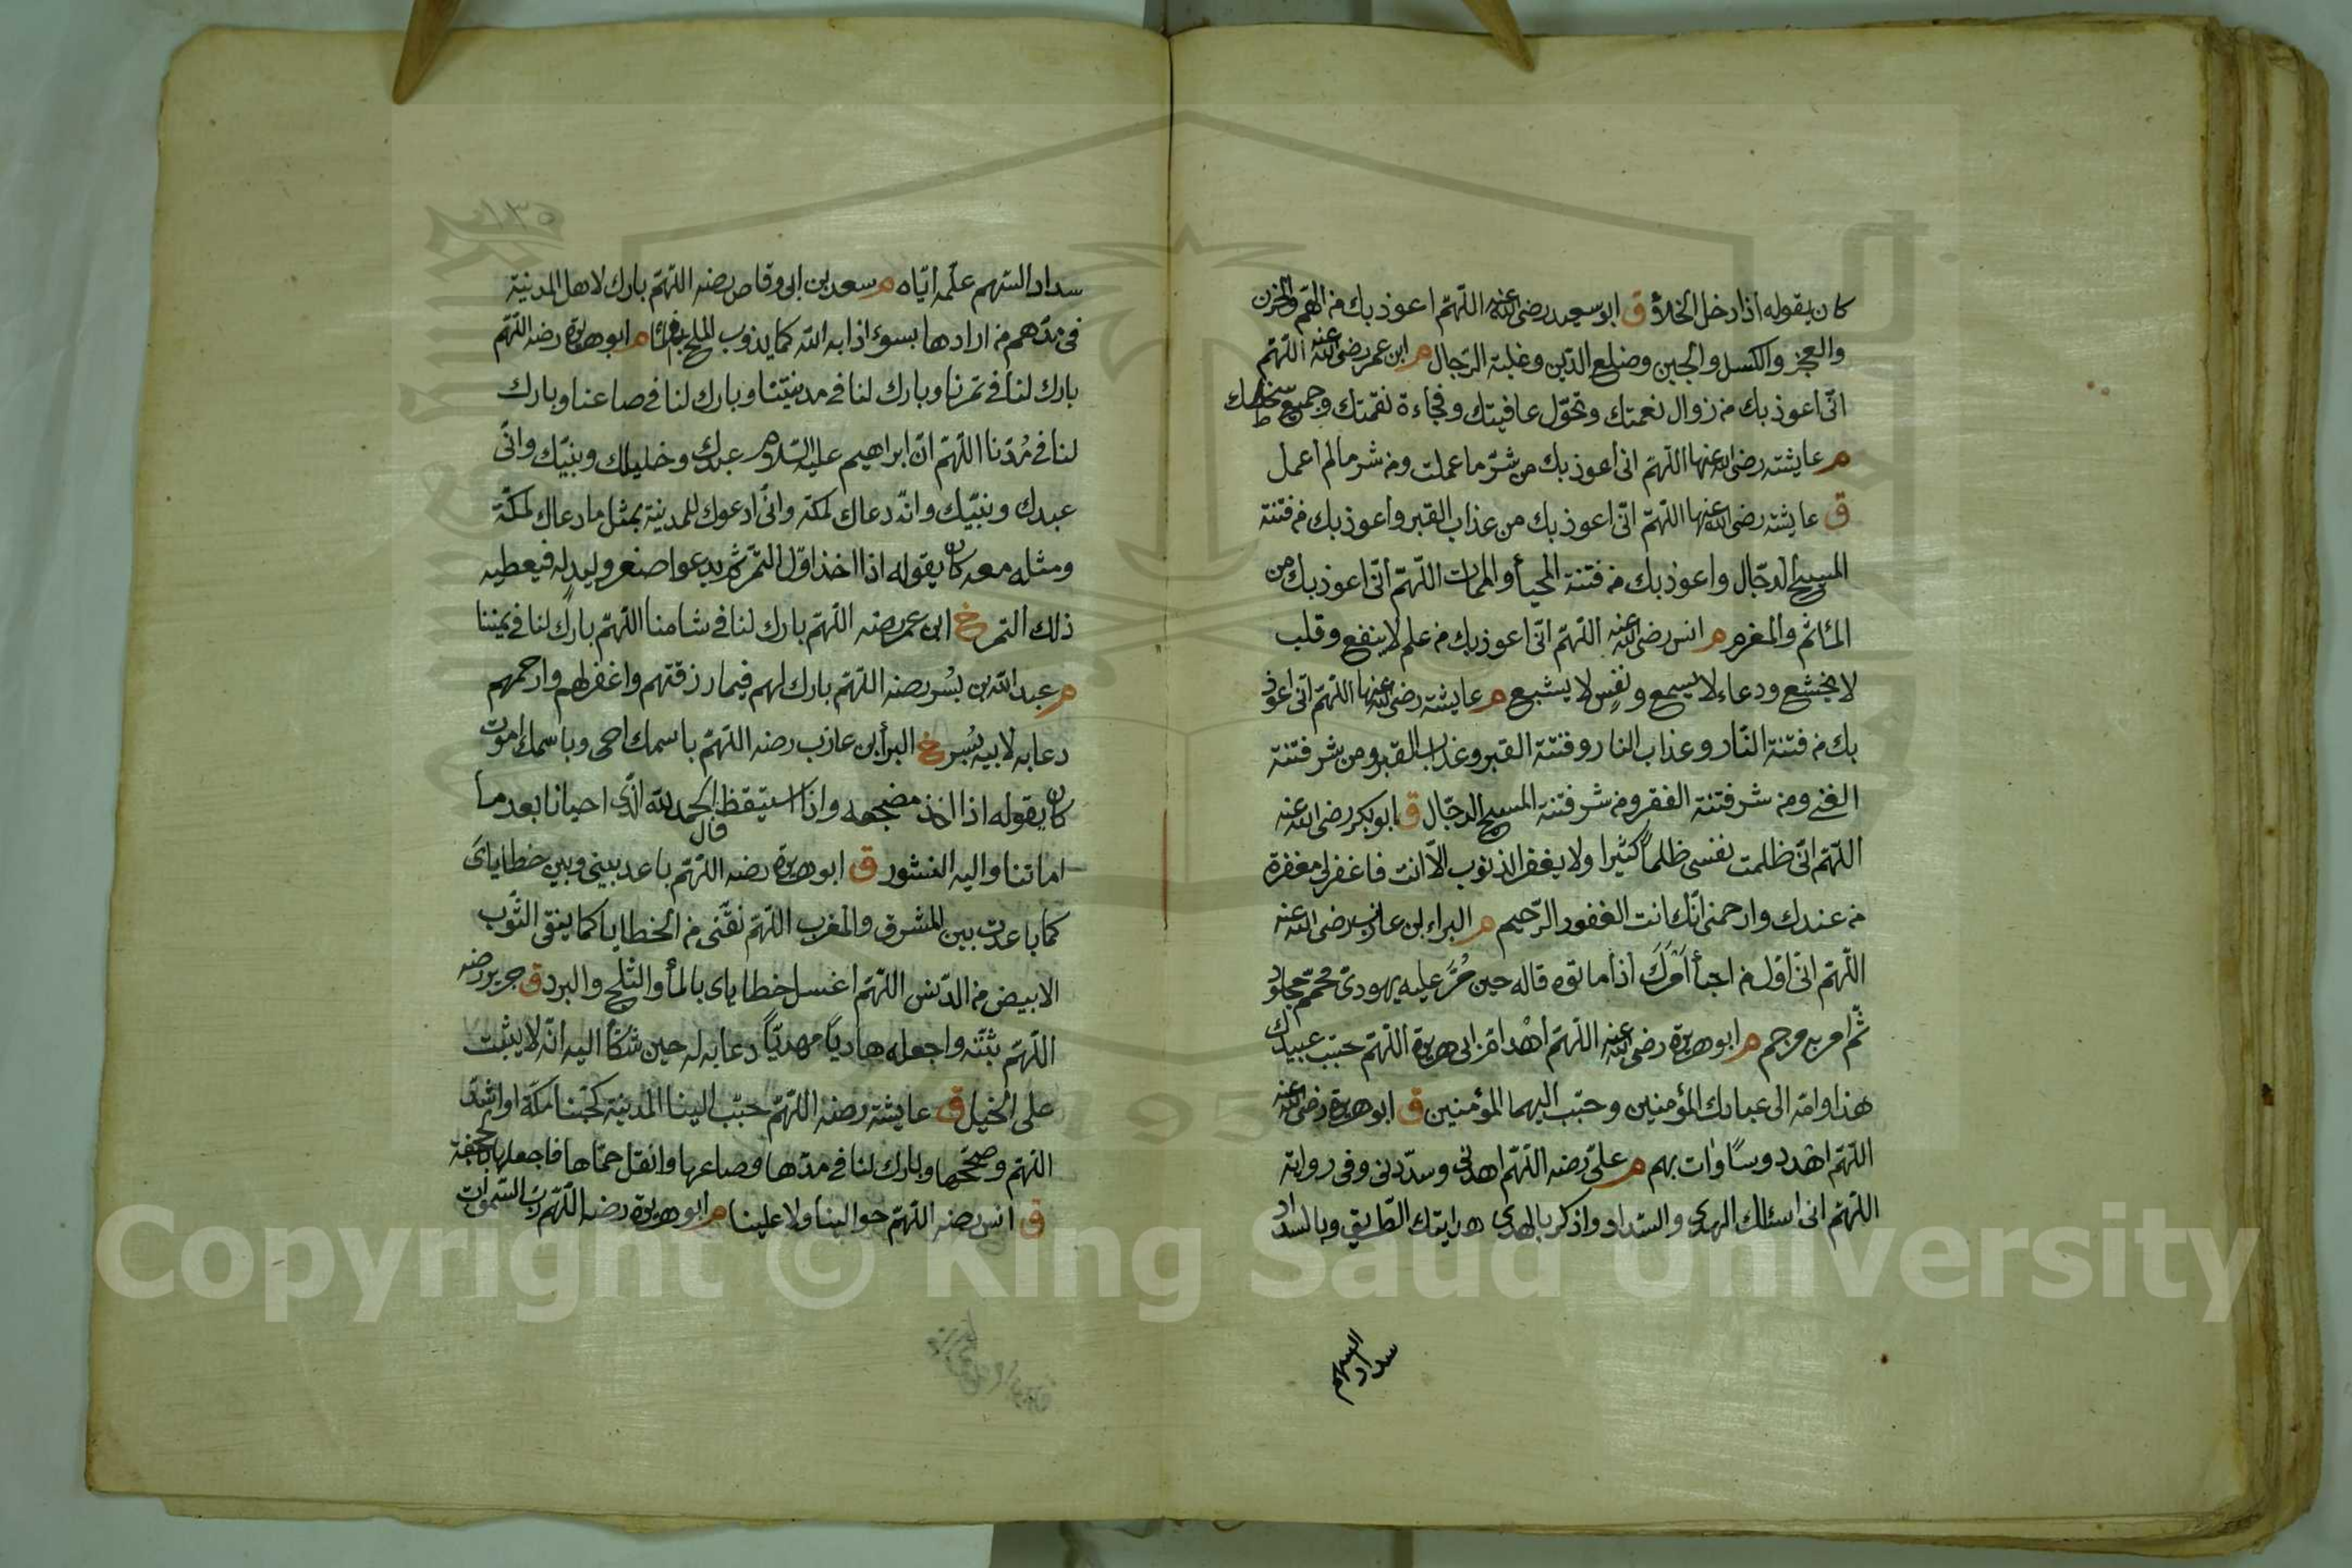 كان يقوله اذا دخل الخلاء ق ابو سعيد رضى الله عنه اللّهمّ اعوذ بك من الهمّ والحزن
والعجز والكسل والجبن وضلع الدّين وغلبة الرّجال م ابن عمر رضى الله عنه اللّهمّ
انّى اعوذ بك من زوال نعمتك وتحوّل عافيتك وفجاءة نقمتك وجميع سخطك
م عايشته رضى الله عنها اللّهمّ انى اعوذ بك من شرّ ما عملت ومن شر مالم اعمل
ق عايشته رضى الله عنها اللّهمّ انّى اعوذ بك من عذاب القبر واعوذ بك من فتنة
المسيح الدجّال واعوذ بك من فتنة المحيا والممات اللّهمّ انّى اعوذ بك من
المأثم والمغرم م انس رضى الله عنه اللّهمّ انّى اعوذ بك من علم لا ينفع وقلب
لا يخشع ودعاء لا يسمع ونفس لا يشبع م عايشته رضى الله عنها اللّهمّ انى اعوذ
بك من فتنة النّار وعذاب النار وفتنة القبر وعذاب القبر ومن شر فتنة
الغنى ومن شر فتنة الفقر ومن شر فتنة المسيح الدجّال ق ابو بكر رضى الله عنه
اللّهمّ انّى ظلمت نفسى ظلماً كثيرا ولا يغفر الذنوب الّا انت فاغفر لى مغفرة
من عندك وارحمنى انّك انت الغفور الرّحيم م البراء بن عازب رضى الله عنه
اللّهمّ انّى اوّل من احيا امرك اذا ماتوه قاله حين مُرَّ عليه يهودىّ محمّم مجلود
ثمّ امر به فرجم م ابو هريرة رضى الله عنه اللّهمّ اهد امّ ابى هريرة اللّهمّ حبّب عبيدك
هذا وامّه الى عبادك المؤمنين وحبّب اليهما المؤمنين ق ابو هريرة رضى الله عنه
اللّهمّ اهد دوسًا وات بهم م علىّ رضه اللّهمّ اهدنى وسدّدنى وفى رواية
اللّهمّ انى اسئلك الهدى والسّداد واذكر بالهدى هدايتك الطّريق وبالسداد
سداد السهم
١٣٥
سداد السّهم علّمه ايّاه م سعد بن ابى وقاص رضه اللّهمّ بارك لاهل المدنية
فى مدّهم من ارادها بسوء اذابه الله كما يذوب الملح فى الماء م ابو هريرة رضه اللّهمّ
بارك لنا فى تمرنا وبارك لنا فى مدنيتنا وبارك لنا فى صاعنا وبارك
لنا فى مُدّنا اللّهمّ انّ ابراهيم عليه السّلام عبدك وخليلك ونبيّك وانّى
عبدك ونبيّك وانّه دعاك لمكة وانّى ادعوك للمدنية بمثل ما دعاك لمكّة
ومثله معه كان يقوله اذا اخذ اوّل الثّمر ثم يدعوا اصغر وليد له فيعطيه
ذلك التمر خ ابن عمر رضه اللّهمّ بارك لنا فى شامنا اللّهمّ بارك لنا فى يمننا
م عبد الله بن بُسر رضه اللّهمّ بارك لهم فيما رزقتهم واغفر لهم وارحمهم
دعا به لابيه بُسر خ البرأ بن عازب رضه اللّهمّ باسمك احى وباسمك اموت
كان يقوله اذا اخذ مضجعه واذا استيقظ قال الحمد لله الّذى احيانا بعد ما
اماتنا واليه النشور ق ابو هريرة رضه اللّهمّ باعد بينى وبين خطاياى
كما باعدت بين المشرق والمغرب اللّهمّ نقّنى من الخطايا كما ينقى الثّوب
الابيض من الدّنس اللّهمّ اغسل خطاياى بالماء والثّلج والبرد ق جرير رضه
اللّهمّ ثبّته واجعله هاديًا مهديّاً دعا به له حين شكا اليه انّه لا يثبت
على الخيل ق عايشته رضه اللّهمّ حبّب الينا المدينة كحبّنا مكّة او اشدّ
اللّهمّ وصحّحها وبارك لنا فى مدّها وصاعها وانقل حمّاها فاجعلها بالجحفة
ق انس رضه اللّهمّ حوالينا ولا علينا م ابو هريرة رضه اللّهمّ ربّ السّموات
Copyright © King Saud University